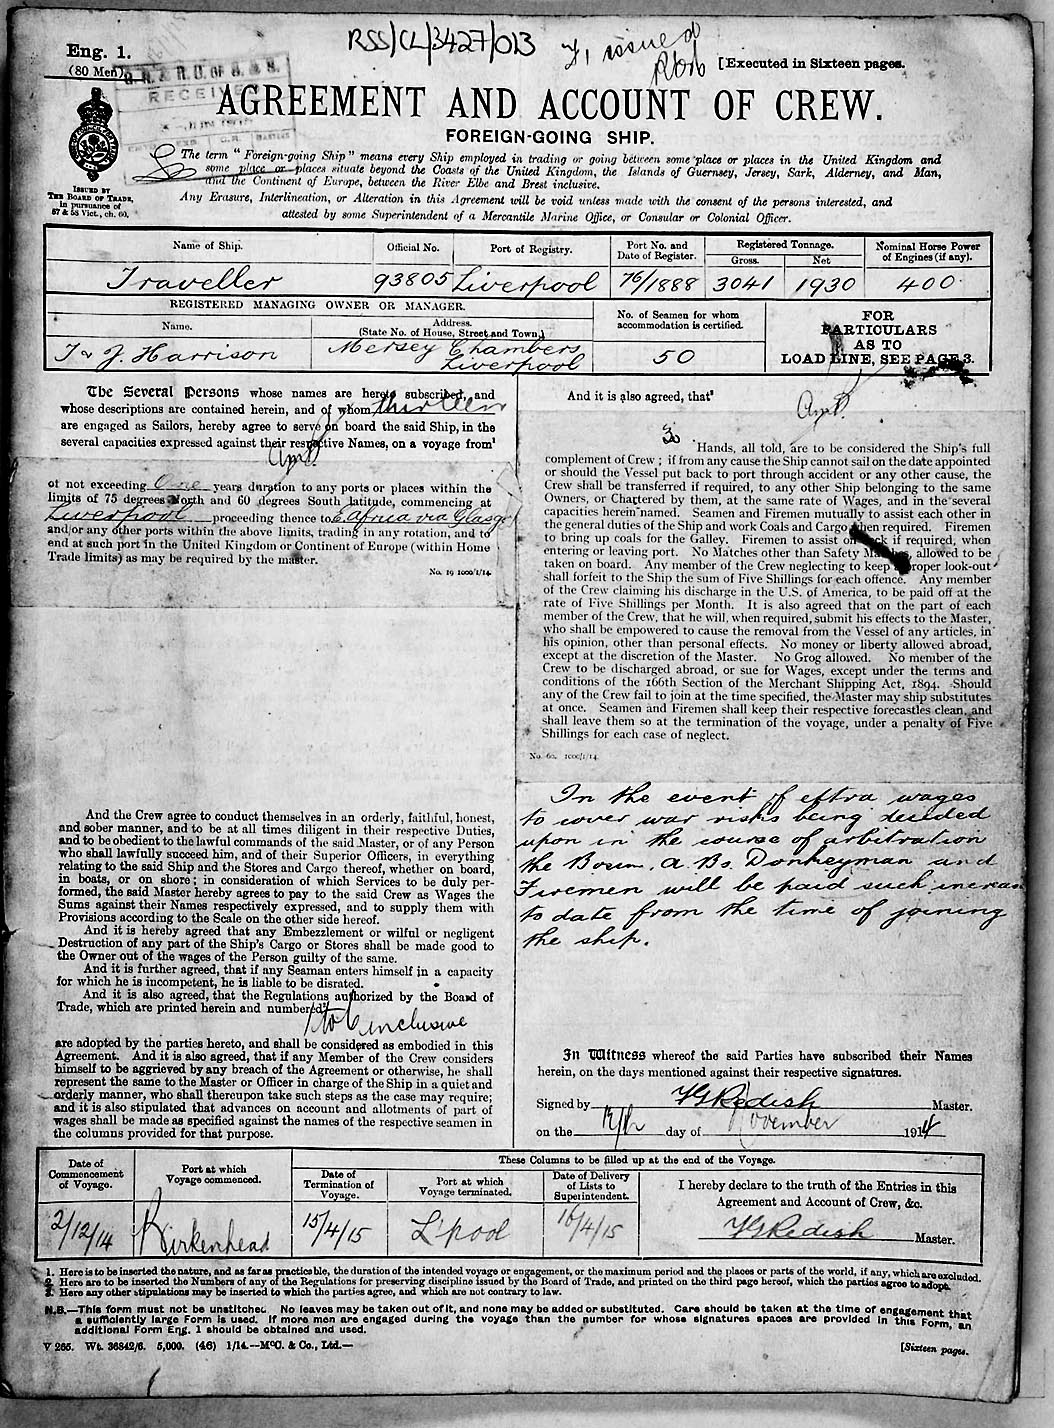 RSS/CL/3427/013
issued
Eng. 1.
(80 Men)
[Executed in Sixteen pages.
RECEIVED
AGREEMENT AND ACCOUNT OF CREW.
FOREIGN-GOING SHIP.
The term "Foreign-going Ship" means every Ship employed in trading or going between some place or places in the United Kingdom and
some place or places situate beyond the Coasts of the United Kingdom, the Islands of Guernsey, Jersey, Sark, Alderney, and Man,
and the Continent of Europe, between the River Elbe and Brest inclusive.
Any Erasure, Interlineation, or Alteration in this Agreement will be void unless made with the consent of the persons interested, and
attested by some Superintendent of a Mercantile Marine Office, or Consular or Colonial Officer.
ISSUED BY
THE BOARD OF TRADE,
in pursuance of
57 & 58 Vict., ch. 60.
Name of Ship. Official No. Port of Registry. Port No. and Date of Register. Registered Tonnage. Gross. Net Nominal Horse Power of Engines (if any).
Traveller 93805 Liverpool 76/1888 3041 1930 400
REGISTERED MANAGING OWNER OR MANAGER.
Name. Address. (State No. of House, Street and Town.)
No. of Seamen for whom accommodation is certified.
T & J. Harrison Mersey Chambers Liverpool 50
FOR
PARTICULARS
AS TO
LOAD LINE, SEE PAGE 3.
The Several Persons whose names are hereto subscribed, and
whose descriptions are contained herein, and of whom thirteen
are engaged as Sailors, hereby agree to serve on board the said Ship, in the
several capacities expressed against their respective Names, on a voyage from¹
of not exceeding One years duration to any ports or places within the
limits of 75 degrees North and 60 degrees South latitude, commencing at
Liverpool proceeding thence to E africa via Glasgo
and/or any other ports within the above limits, trading in any rotation, and to
end at such port in the United Kingdom or Continent of Europe (within Home
Trade limits) as may be required by the master.
No. 19 1000/1/14.
And the Crew agree to conduct themselves in an orderly, faithful, honest,
and sober manner, and to be at all times diligent in their respective Duties,
and to be obedient to the lawful commands of the said Master, or of any Person
who shall lawfully succeed him, and of their Superior Officers, in everything
relating to the said Ship and the Stores and Cargo thereof, whether on board,
in boats, or on shore; in consideration of which Services to be duly per-
formed, the said Master hereby agrees to pay to the said Crew as Wages the
Sums against their Names respectively expressed, and to supply them with
Provisions according to the Scale on the other side hereof.
And it is hereby agreed that any Embezzlement or wilful or negligent
Destruction of any part of the Ship's Cargo or Stores shall be made good to
the Owner out of the wages of the Person guilty of the same.
And it is further agreed, that if any Seaman enters himself in a capacity
for which he is incompetent, he is liable to be disrated.
And it is also agreed, that the Regulations authorized by the Board of
Trade, which are printed herein and numbered²
1 to 6 inclusive
are adopted by the parties hereto, and shall be considered as embodied in this
Agreement. And it is also agreed, that if any Member of the Crew considers
himself to be aggrieved by any breach of the Agreement or otherwise, he shall
represent the same to the Master or Officer in charge of the Ship in a quiet and
orderly manner, who shall thereupon take such steps as the case may require;
and it is also stipulated that advances on account and allotments of part of
wages shall be made as specified against the names of the respective seamen in
the columns provided for that purpose.
And it is also agreed, that³
Hands, all told, are to be considered the Ship's full
complement of Crew; if from any cause the Ship cannot sail on the date appointed
or should the Vessel put back to port through accident or any other cause, the
Crew shall be transferred if required, to any other Ship belonging to the same
Owners, or Chartered by them, at the same rate of Wages, and in the several
capacities herein named. Seamen and Firemen mutually to assist each other in
the general duties of the Ship and work Coals and Cargo when required. Firemen
to bring up coals for the Galley. Firemen to assist on deck if required, when
entering or leaving port. No Matches other than Safety Matches, allowed to be
taken on board. Any member of the Crew neglecting to keep a proper look-out
shall forfeit to the Ship the sum of Five Shillings for each offence. Any member
of the Crew claiming his discharge in the U.S. of America, to be paid off at the
rate of Five Shillings per Month. It is also agreed that on the part of each
member of the Crew, that he will, when required, submit his effects to the Master,
who shall be empowered to cause the removal from the Vessel of any articles, in
his opinion, other than personal effects. No money or liberty allowed abroad,
except at the discretion of the Master. No Grog allowed. No member of the
Crew to be discharged abroad, or sue for Wages, except under the terms and
conditions of the 166th Section of the Merchant Shipping Act, 1894. Should
any of the Crew fail to join at the time specified, the Master may ship substitutes
at once. Seamen and Firemen shall keep their respective forecastles clean, and
shall leave them so at the termination of the voyage, under a penalty of Five
Shillings for each case of neglect.
No. 60. 1000/1/14.
In the event of extra wages
to cover war risks being decided
upon in the course of arbitration
the Bosun, A. Bs, Donkeyman and
Firemen will be paid such increase
to date from the time of joining
the ship.
In Witness whereof the said Parties have subscribed their Names
herein, on the days mentioned against their respective signatures.
Signed by VG Redish Master.
on the day of November 1914
Date of Commencement of Voyage. Port at which Voyage commenced.
These Columns to be filled up at the end of the Voyage.
Date of Termination of Voyage. Port at which Voyage terminated. Date of Delivery of Lists to Superintendent.
I hereby declare to the truth of the Entries in this
Agreement and Account of Crew, &c.
2/12/14 Birkenhead 15/4/15 L'pool 16/4/15 VG Redish Master.
1. Here is to be inserted the nature, and as far as practicable, the duration of the intended voyage or engagement, or the maximum period and the places or parts of the world, if any, which are excluded.
2. Here are to be inserted the Numbers of any of the Regulations for preserving discipline issued by the Board of Trade, and printed on the third page hereof, which the parties agree to adopt.
3. Here any other stipulations may be inserted to which the parties agree, and which are not contrary to law.
N.B.—This form must not be unstitched. No leaves may be taken out of it, and none may be added or substituted. Care should be taken at the time of engagement that
a sufficiently large Form is used. If more men are engaged during the voyage than the number for whose signatures spaces are provided in this Form, an
additional Form Eng. 1 should be obtained and used.
V 265. Wt. 36842/6. 5,000. (46) 1/14.—McC. & Co., Ltd.—
[Sixteen pages.